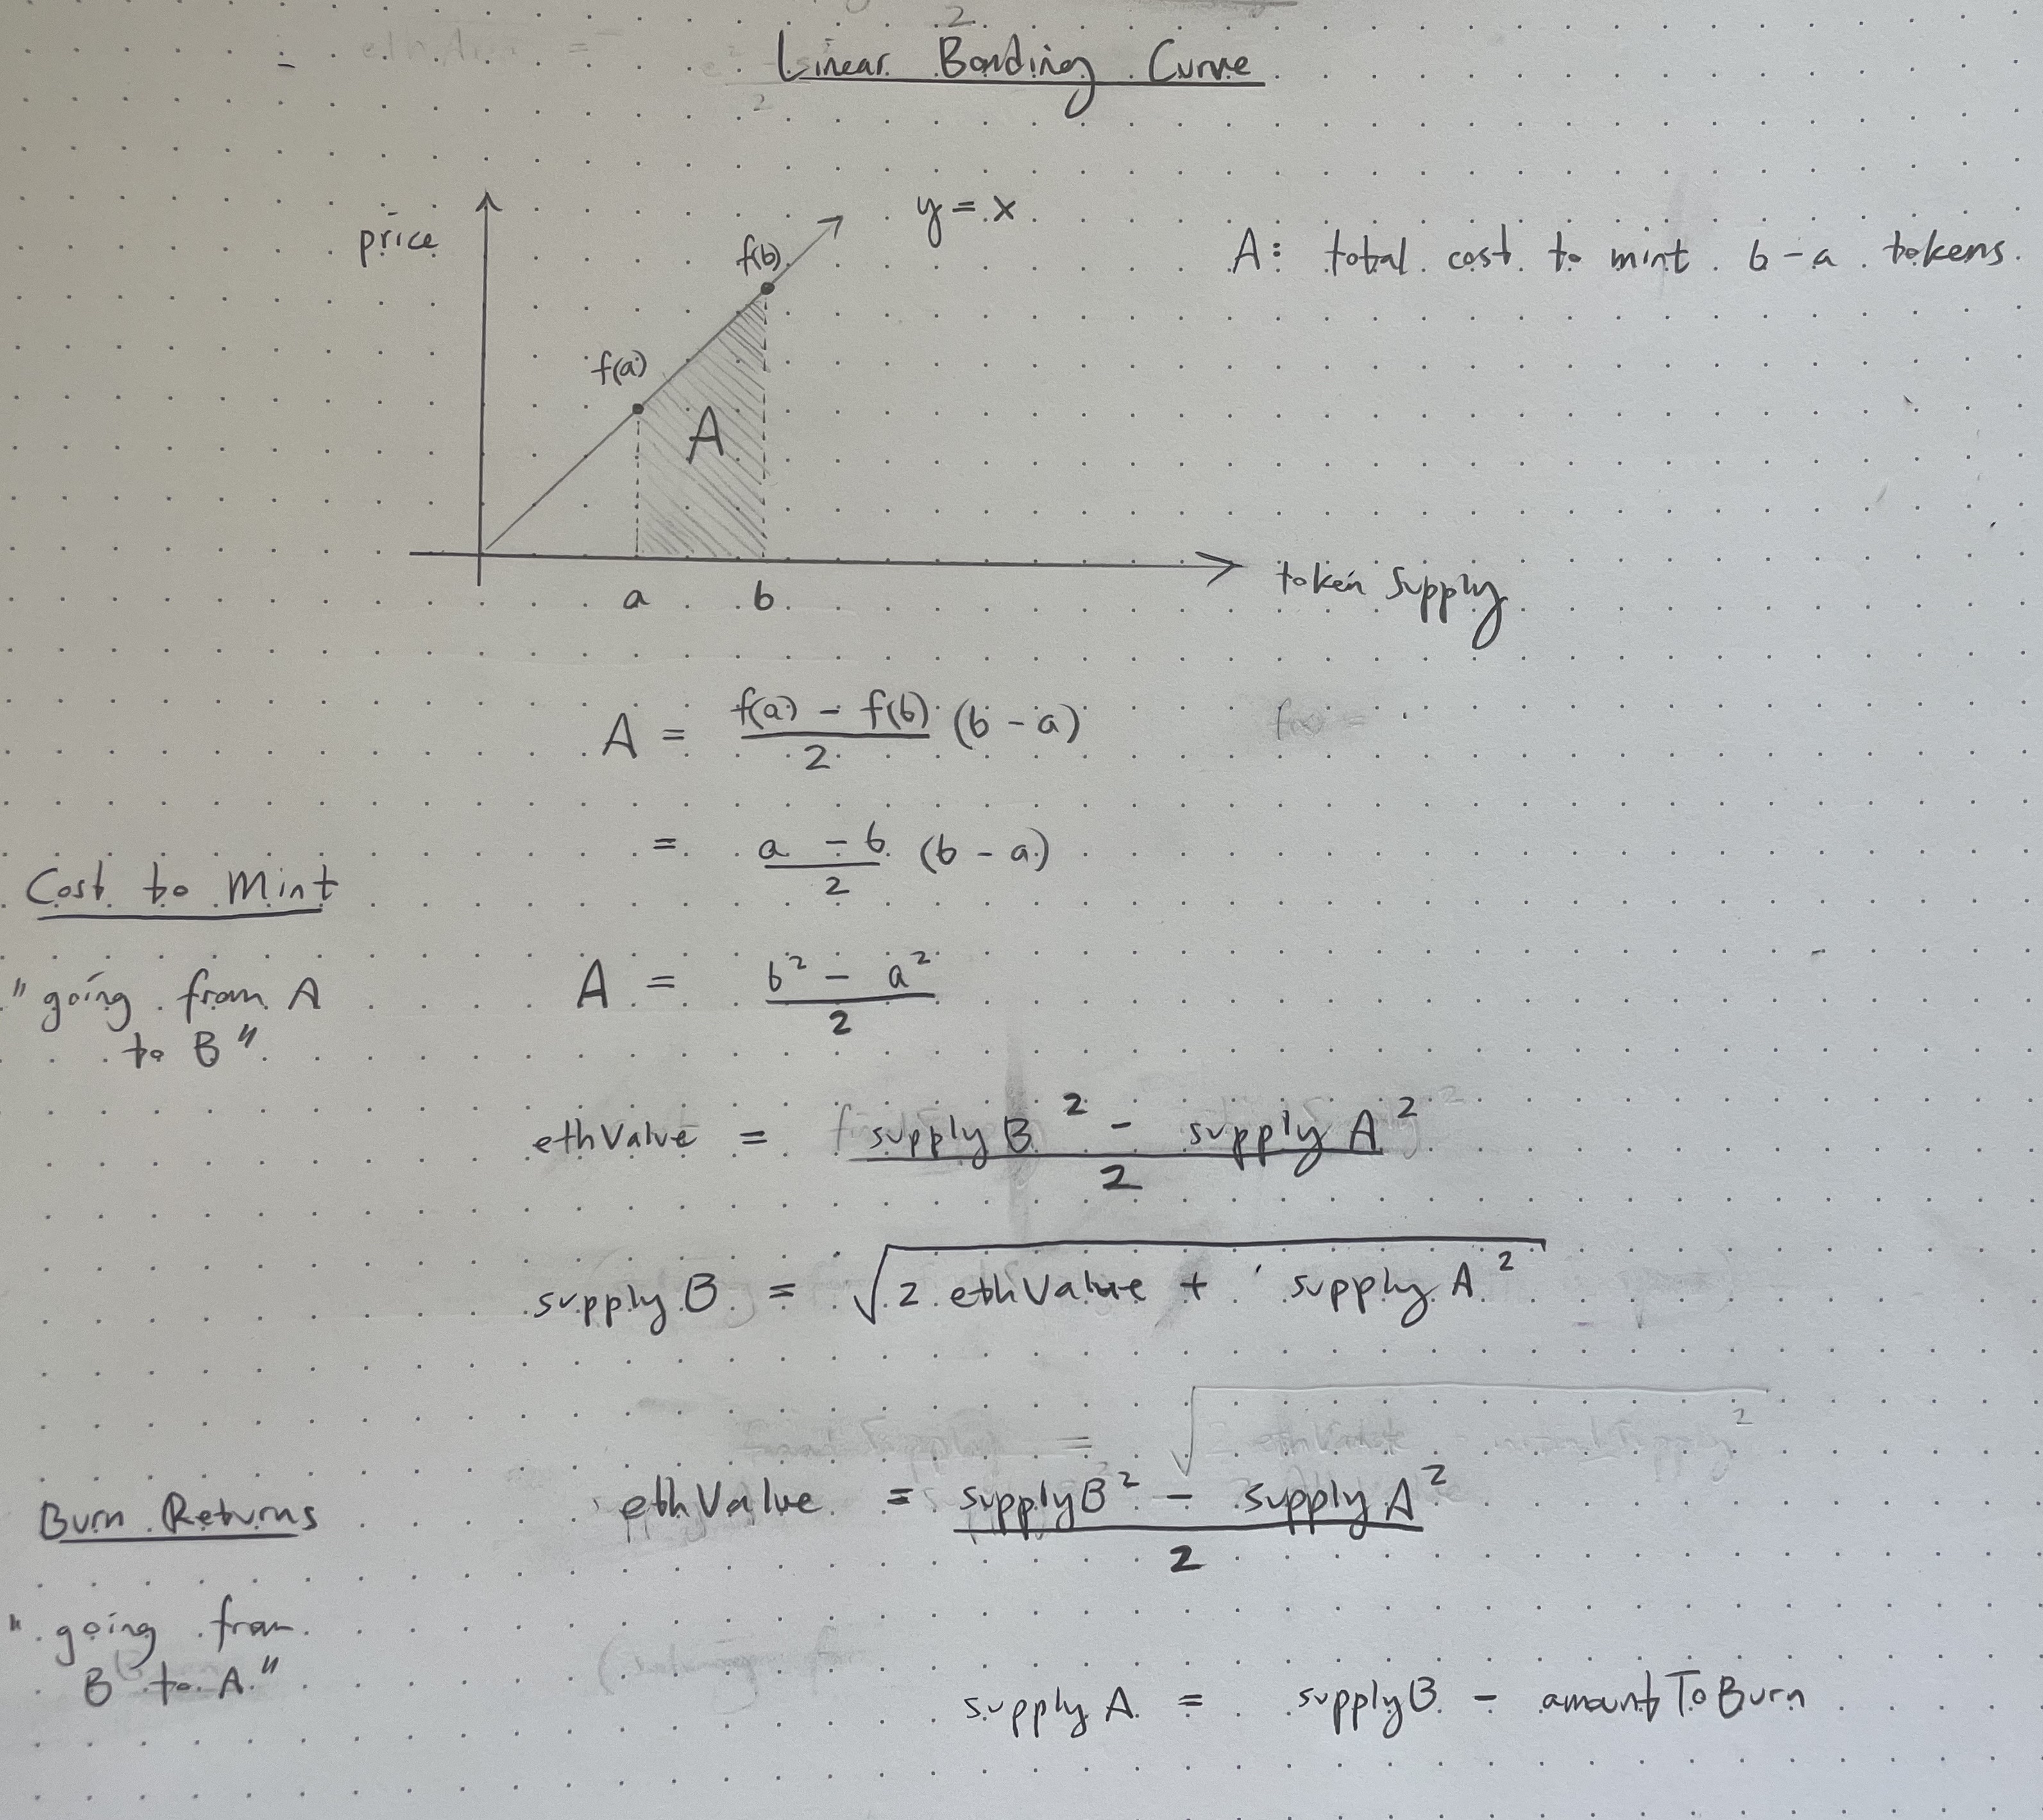 Linear Bonding Curve
price
y = x
f(b)
A: total cost to mint b - a tokens.
f(a)
A
a b
token supply
A = f(a) - f(b) / 2 (b - a)
= a - b / 2 (b - a)
Cost to Mint
"going from A
to B"
A = b² - a² / 2
ethValue = supplyB² - supplyA² / 2
supplyB = √2 ethValue + supplyA²
Burn Returns
ethValue = supplyB² - supplyA² / 2
"going from
B to A"
supplyA = supplyB - amountToBurn